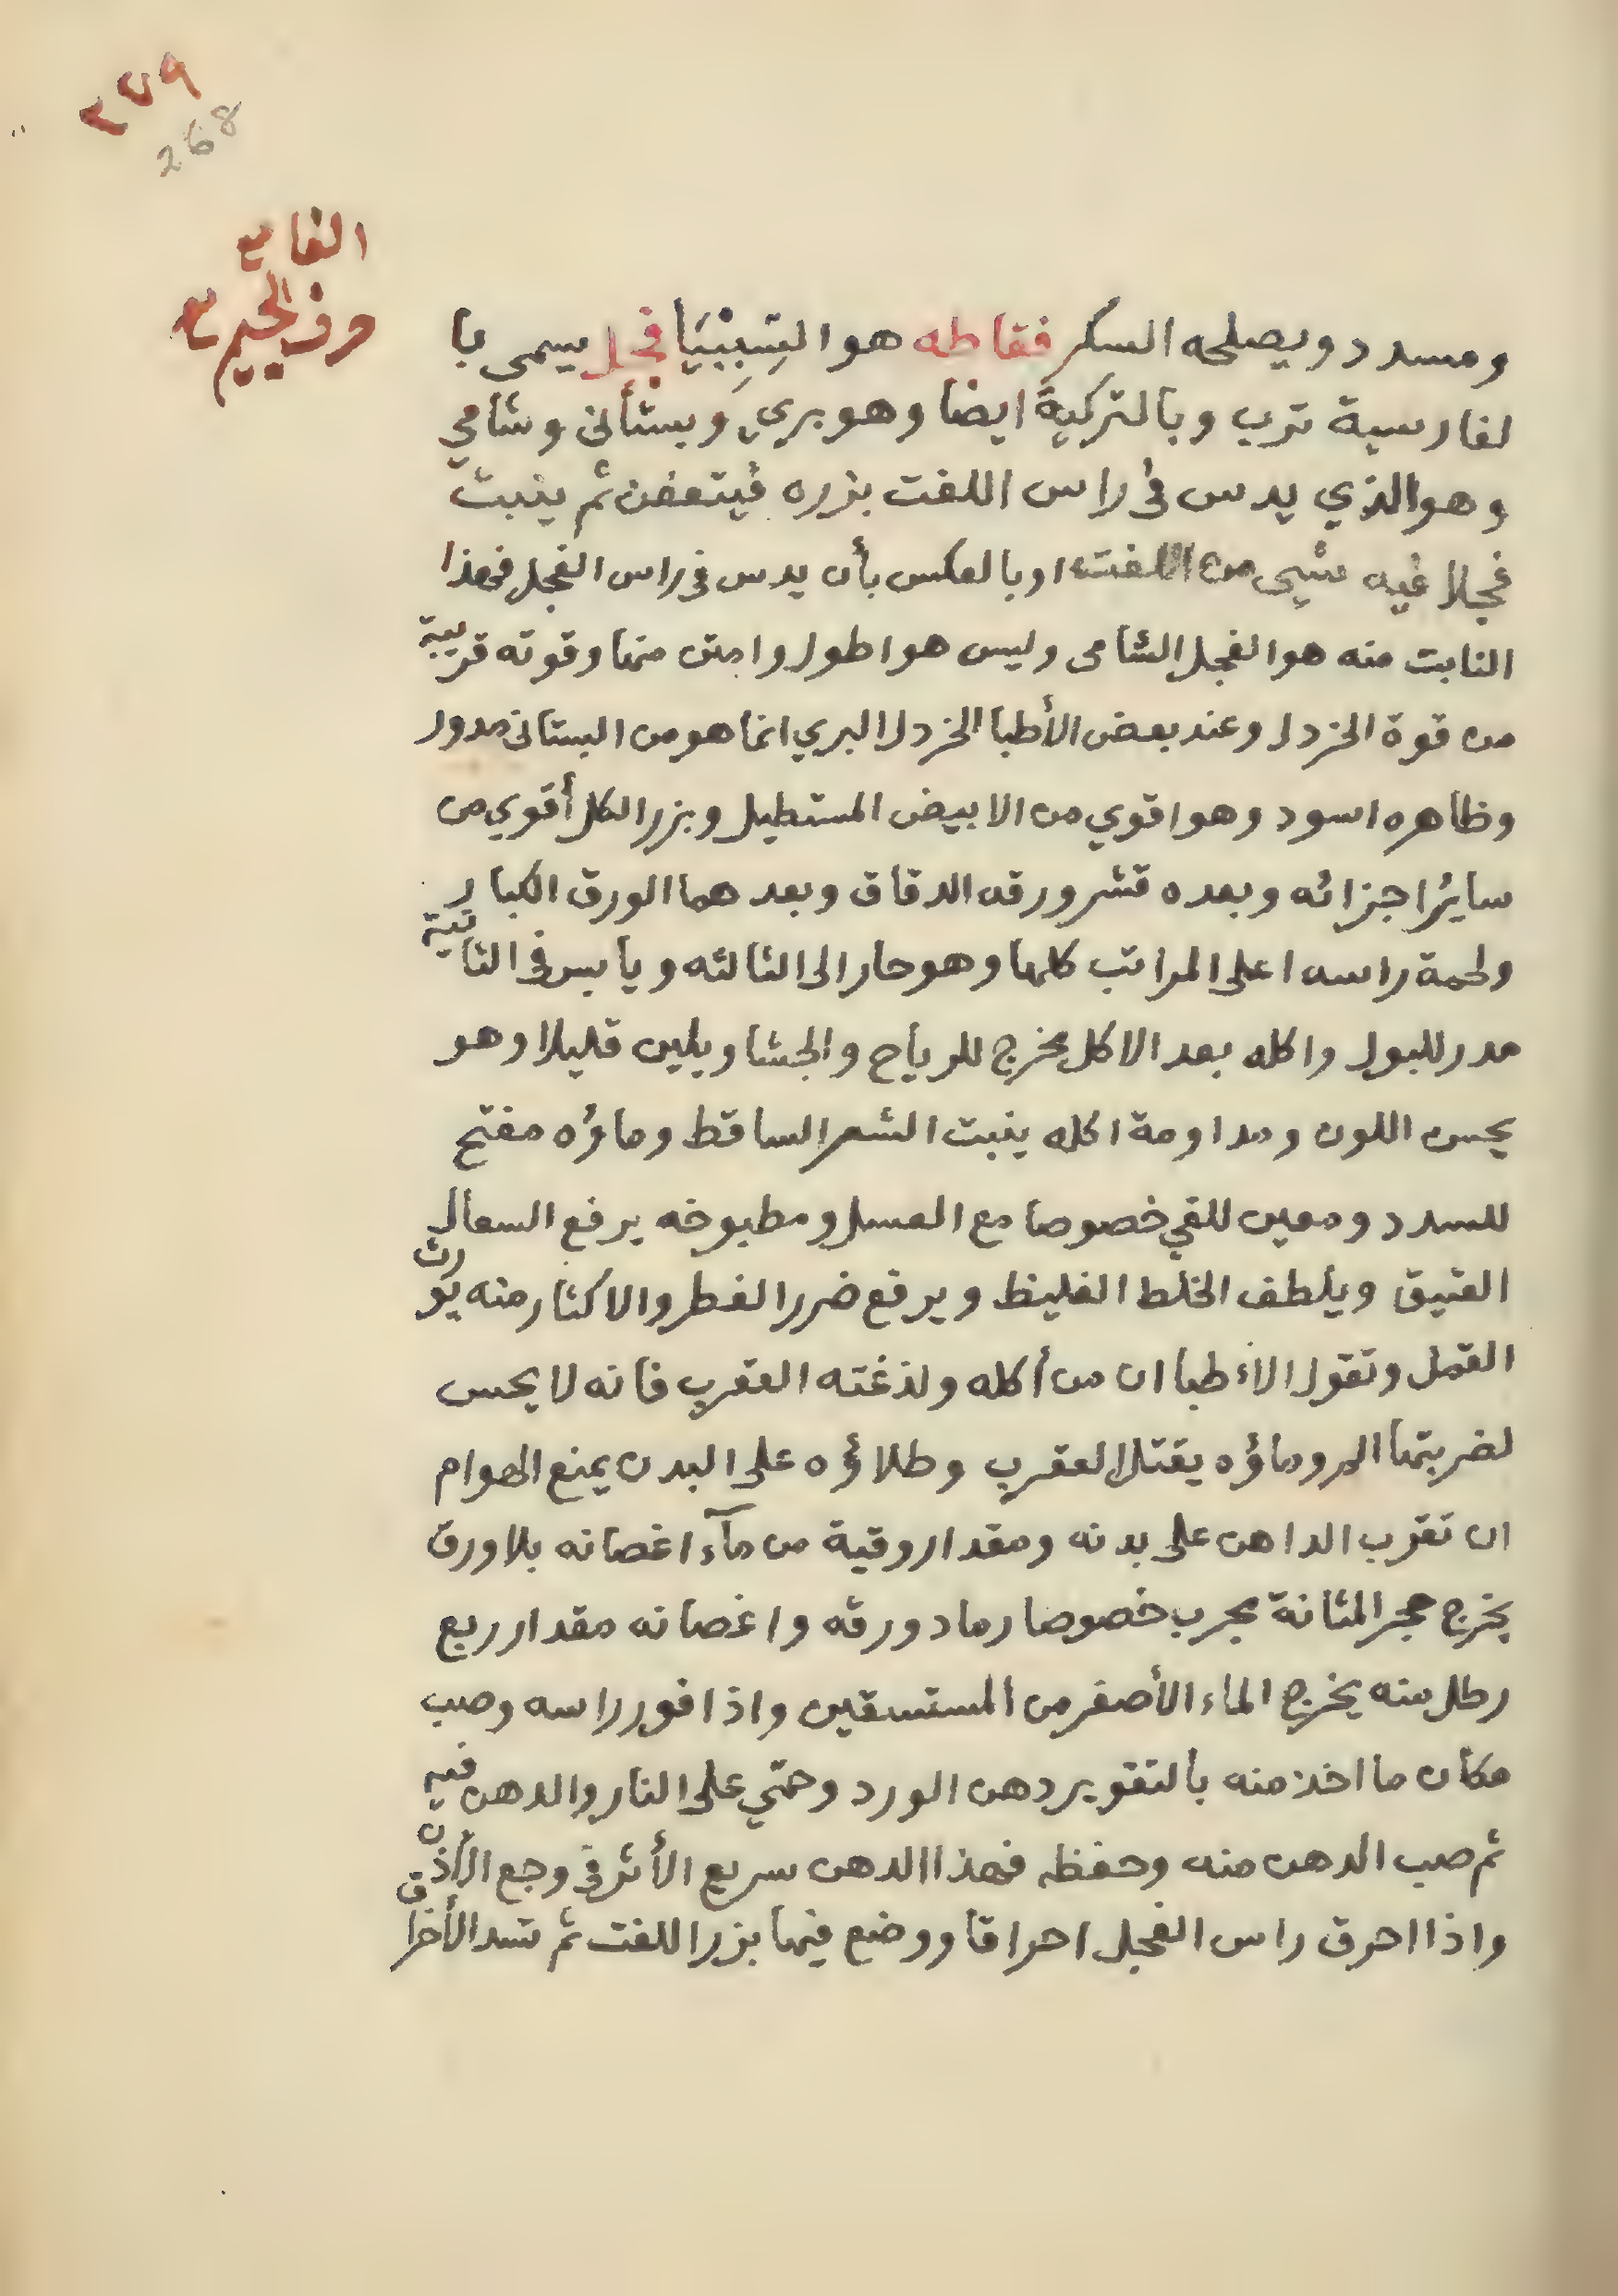 ٢٧٩
268
الفا مع
حرف الجيم مع
ومسدد ويصلحه السكر فقاطه هو التِبِبْيَا فجل يسمى با
لفارسية ترب وبالتركية ايضا وهو بري وبستأنى وشامي
وهو الذي يدس فى راس اللفت بزره فيتعفن ثم ينبت
فجلا فيه شيى من اللفت او بالعكس بأن يدس فى راس الفجل فهذا
النابت منه هو الفجل الشامى وليس هو اطول وامتن منها وقوته قريبة
من قوة الخردل وعند بعض الأطبا الخردل البري انما هو من البستانى مدور
وظاهره اسود وهو اقوي من الابيض المستطيل وبزر الكل أقوي من
سايرُ اجزائه وبعده قشر ورقه الدقاق وبعدهما الورق الكبار
ولحمة راسه اعلى المراتب كلها وهو حار الى الثالثه ويابس فى الثانية
مدر للبول واكله بعد الاكل مخرج للرياح والجشا ويلين قليلا وهو
يحسن اللون ومداومة اكله ينبت الشعر الساقط وماؤه مفتح
للسدد ومعين للقي خصوصا مع العسل ومطبوخه يرفع السعال
العتيق ويلطف الخلط الغليظ ويرفع ضرر الفطر والاكثار منه يورث
القمل وتقول الاءطبا ان من أكله ولذغته العقرب فانه لا يحس
لضربتها المر وماؤه يقتل العقرب وطلاؤه على البدن يمنع الهوام
ان تقرب الداهن على بدنه ومقدار وقية من مآء اغصانه بلا ورق
يخرج حجر المثانة مجرب خصوصا رماد ورقه واغصانه مقدار ربع
رطل منه يخرج الماء الأصفر من المستسقين واذا فور راسه وصب
مكان ما اخذ منه بالتقوير دهن الورد وحمّي على النار والدهن فيه
ثم صب الدهن منه وحفظه فهذا الدهن سريع الأثر فى وجع الأذن
واذا احرق راس الفجل احراقا ووضع فيها بزر اللفت ثم تسد الأخراق